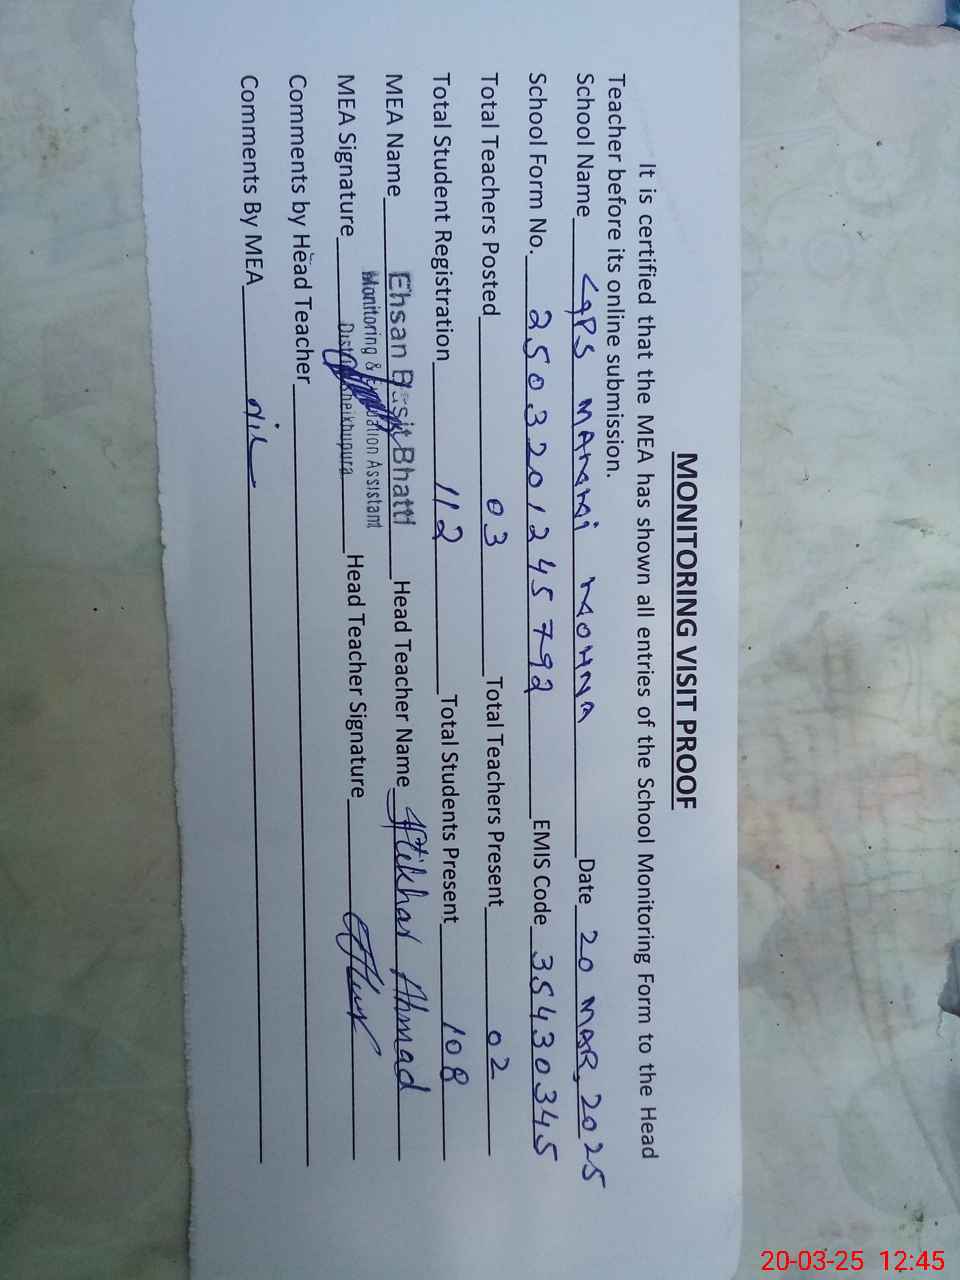 MONITORING VISIT PROOF
It is certified that the MEA has shown all entries of the School Monitoring Form to the Head
Teacher before its online submission.
School Name GPS MAmmi MOHNA Date 20 MAR, 2025
School Form No. 2503201245792 EMIS Code 35430345
Total Teachers Posted 03 Total Teachers Present 02
Total Student Registration 112 Total Students Present 108
MEA Name Ehsan Basit Bhatti Head Teacher Name Iftikhar Ahmad
Monitoring & Evaluation Assistant
District Sheikhupura
MEA Signature Head Teacher Signature
Comments by Head Teacher
Comments By MEA Nil
20-03-25 12:45